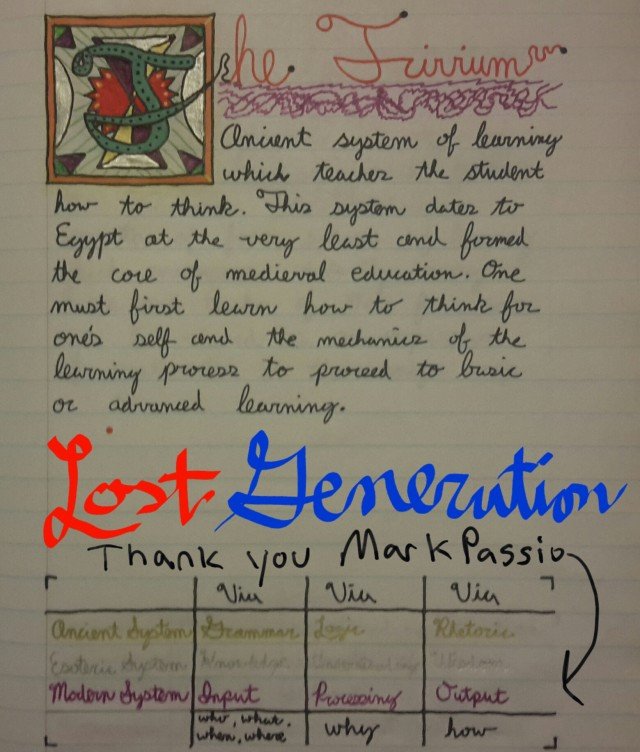 The Trivium
Ancient system of learning
which teaches the student
how to think. This system dates to
Egypt at the very least and formed
the core of medieval education. One
must first learn how to think for
one's self and the mechanics of the
learning process to proceed to basic
or advanced learning.
Lost Generation
Thank you Mark Passio
Via Via Via
Ancient System Grammar Logic Rhetoric
Esoteric System Knowledge Understanding Wisdom
Modern System Input Processing Output
who, what, why how
when, where